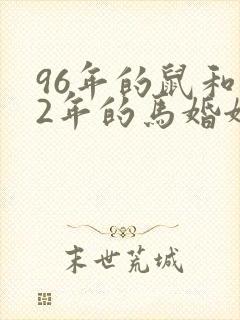 96年的鼠和
2年的马婚
末世荒城